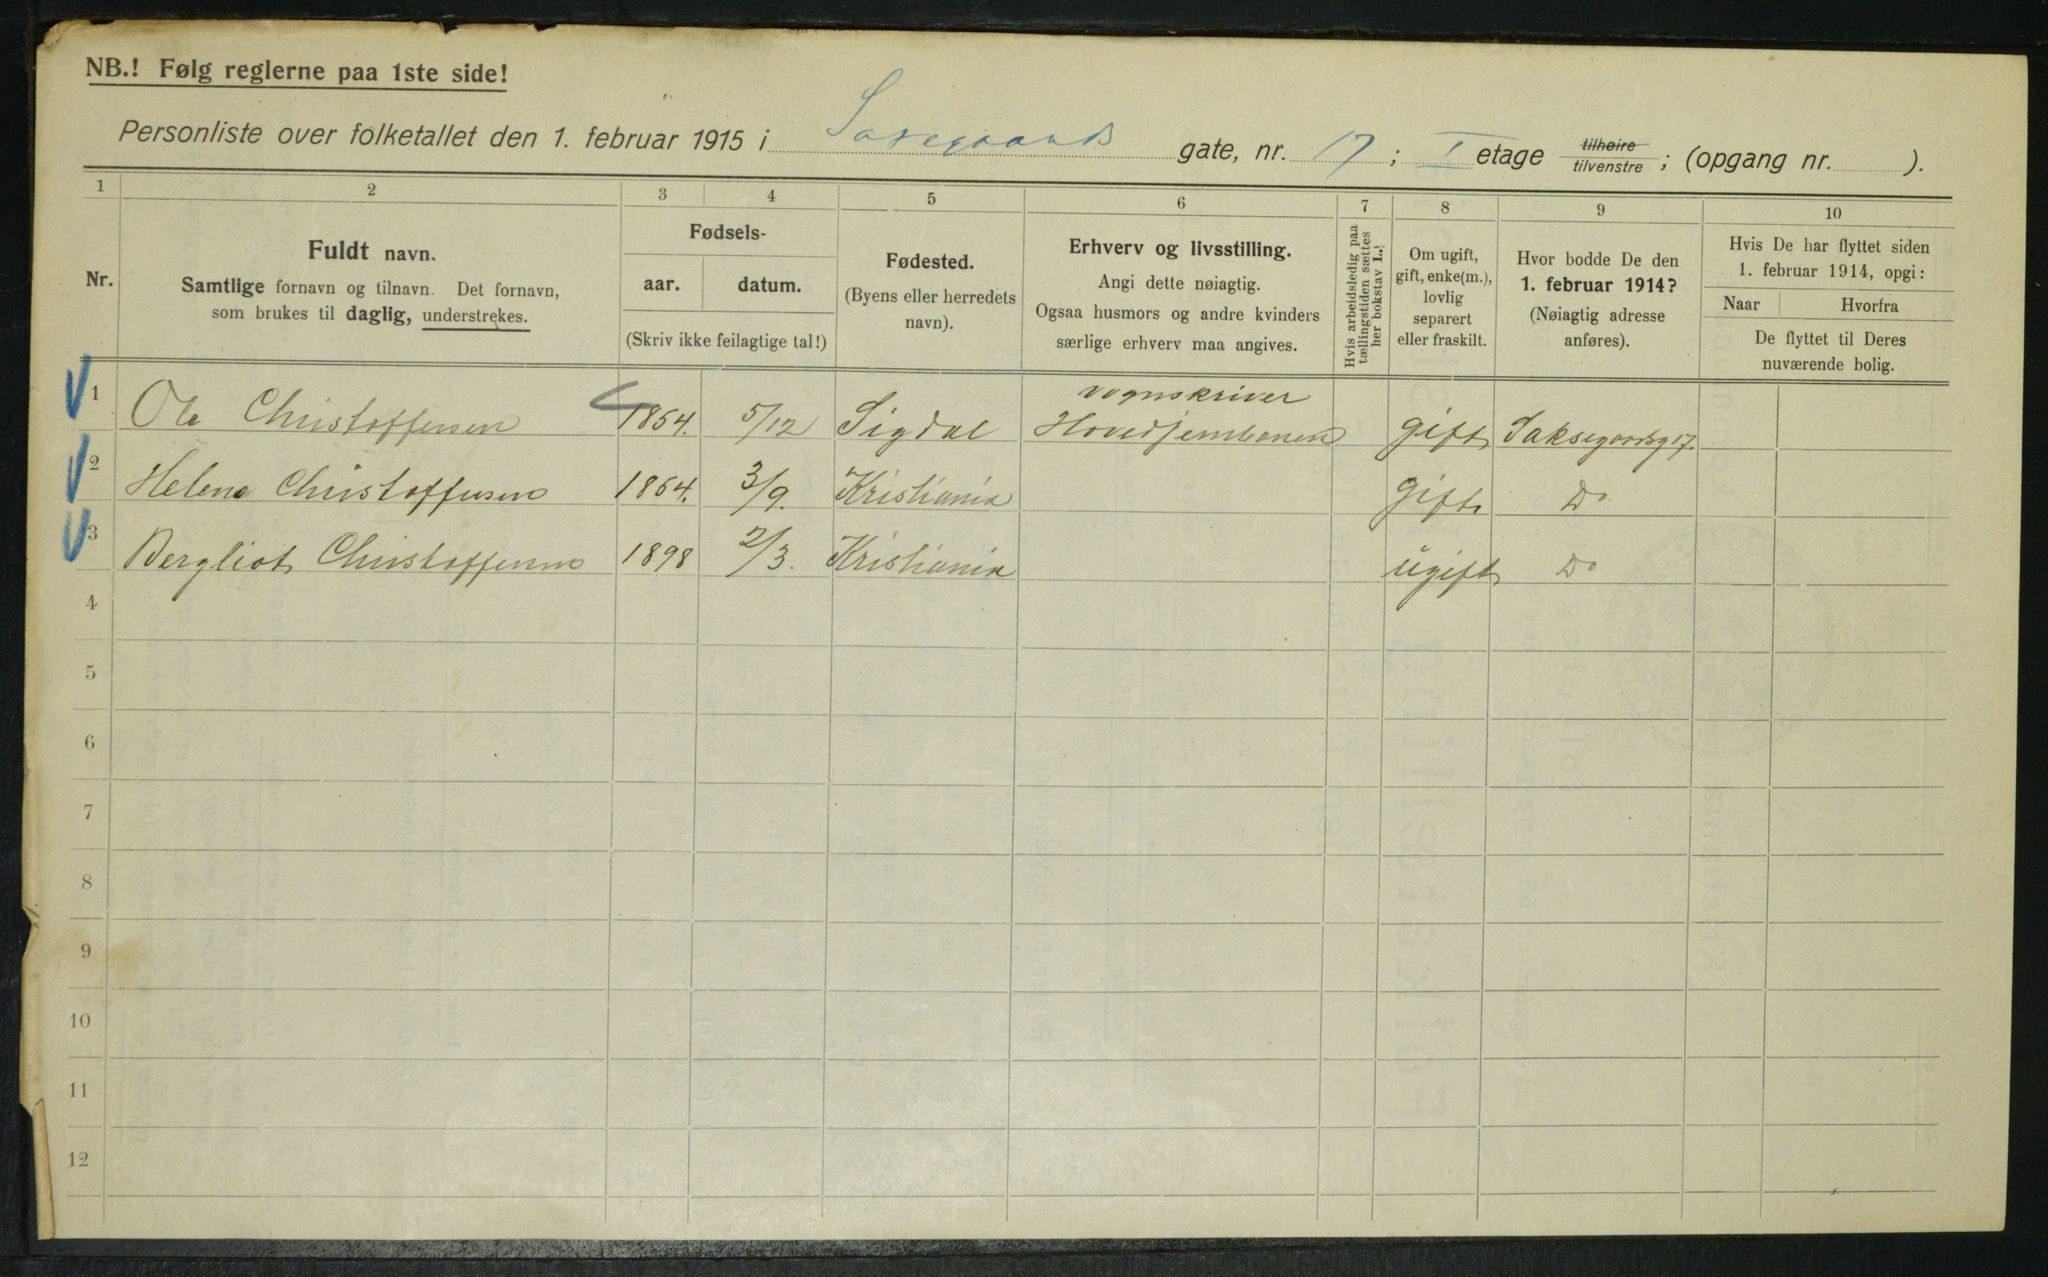 NB.! Følg reglerne paa 1ste side!
Personliste over folketallet den 1. februar 1915 i Saxegaards gate, nr. 17; I etage tilhøire tilvenstre; (opgang nr. ).
1 2 3 4 5 6 7 8 9 10
Nr.
Fuldt navn.
Samtlige fornavn og tilnavn. Det fornavn,
som brukes til daglig, understrekes.
Fødsels-
aar. datum.
(Skriv ikke feilagtige tal!)
Fødested.
(Byens eller herredets
navn).
Erhverv og livsstilling.
Angi dette nøiagtig.
Ogsaa husmors og andre kvinders
særlige erhverv maa angives.
Hvis arbeidsledig paa
tællingstiden sættes
her bokstav L.
Om ugift,
gift, enke(m.),
lovlig
separert
eller fraskilt.
Hvor bodde De den
1. februar 1914?
(Nøiagtig adresse
anføres).
Hvis De har flyttet siden
1. februar 1914, opgi:
Naar Hvorfra
De flyttet til Deres
nuværende bolig.
1 Ole Christoffersen 1854. 5/12 Sigdal vognskriver
Hovedjernbanen gift Saksegaardsg 17.
2 Helene Christoffersen 1864. 3/9. Kristiania gift Do
3 Bergliot Christoffersen 1898 2/3. Kristiania ugift Do
4
5
6
7
8
9
10
11
12